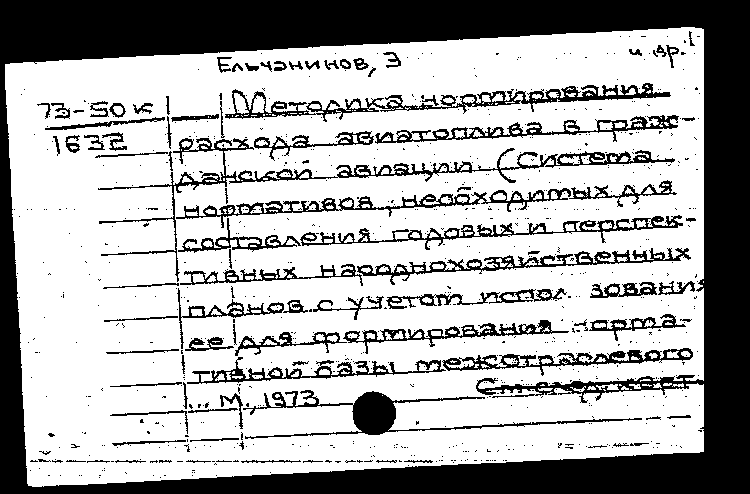 Ельчанинов, Э и др.
73-50к Методика нормирования
1632 расхода авиатоплива в граж-
данской авиации. (Система
нормативов, необходимых для
составления годовых и перспек-
тивных народнохозяйственных
планов с учетом испол зования
ее для формирования норма-
тивной базы межотраслевого
... М., 1973 См след. карт.